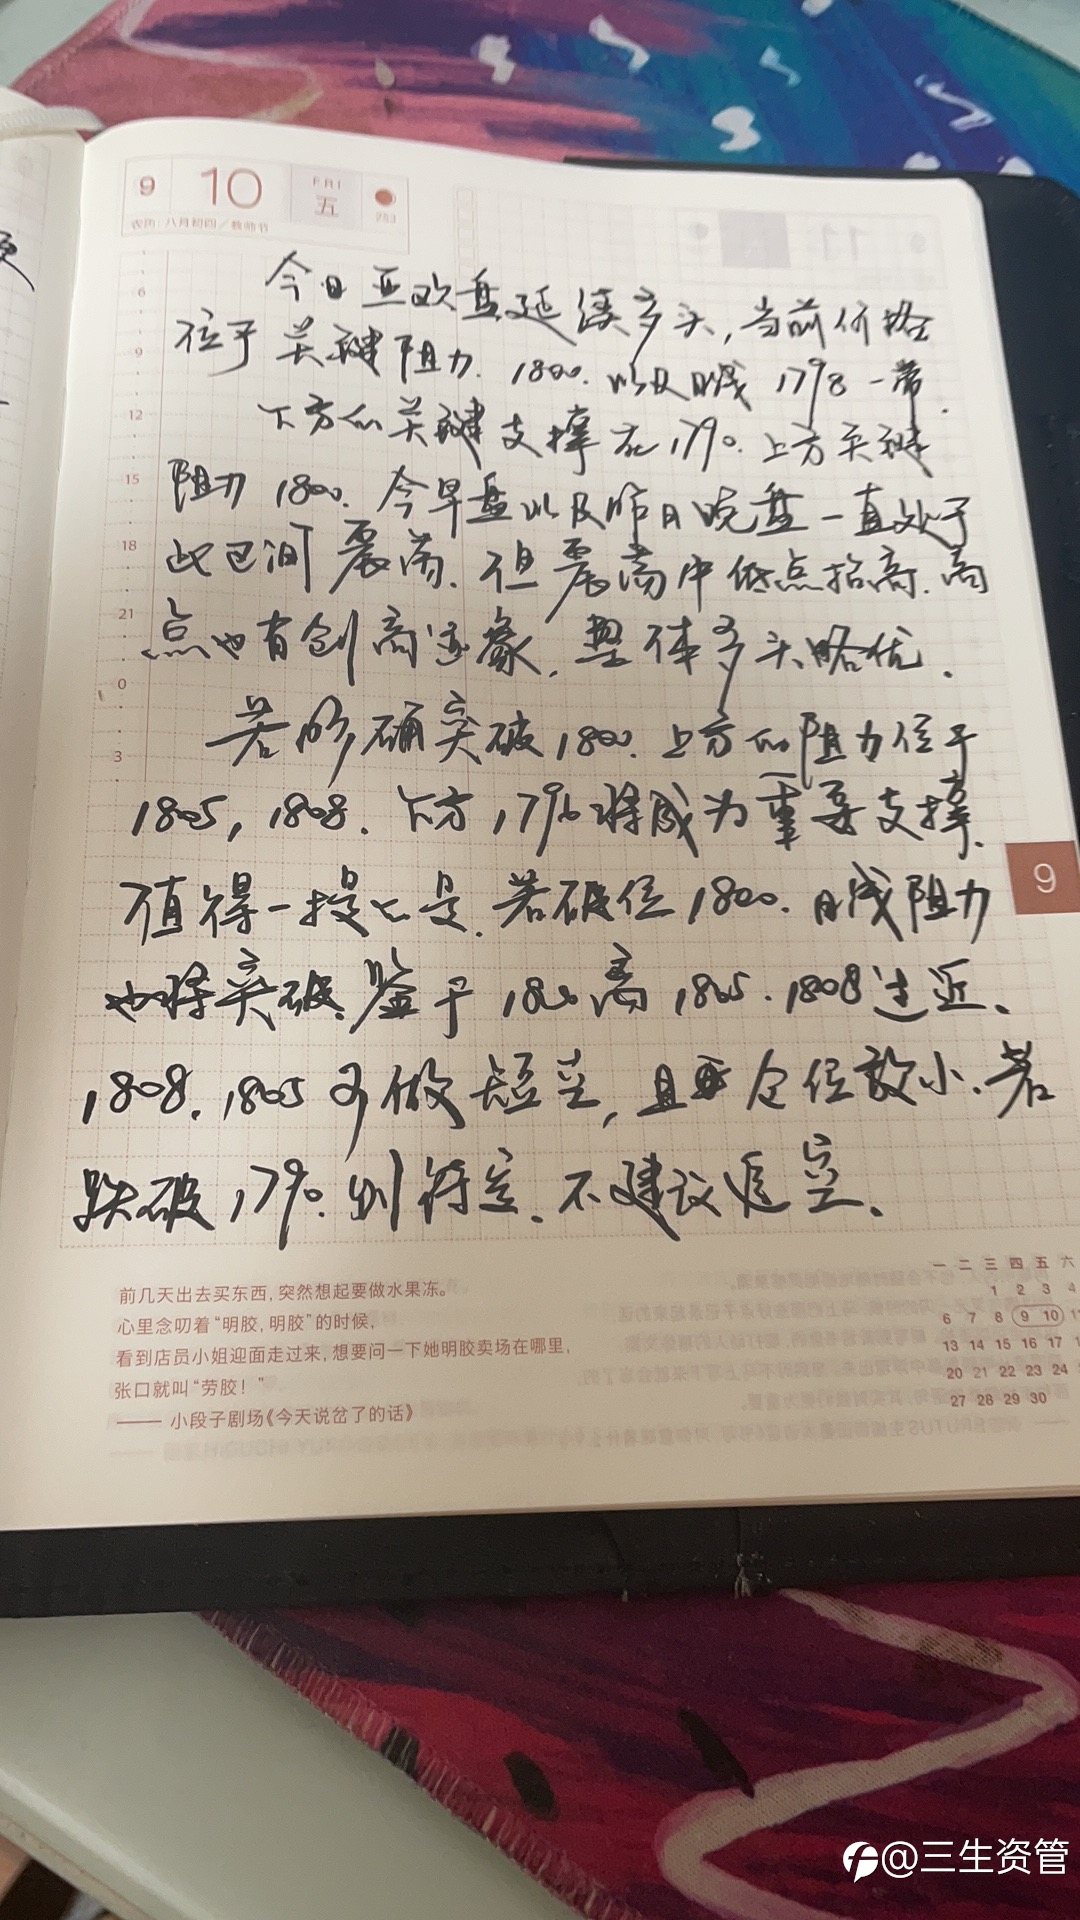 9 10 FRI 五 253
农历:八月初四/教师节
6
9
12
15
18
21
0
3
今日亚欧盘延续多头,当前价格
位于关键阻力.1800.以及日线1798一带.
下方的关键支撑在1790.上方关键
阻力1800.今早盘以及昨日晚盘一直处于
此区间震荡.但震荡中低点抬高.高
点也有创高迹象.整体多头略优.
若明确突破1800.上方的阻力位于
1805,1808.下方1796将成为重要支撑.
值得一提的是.若破位1800.日线阻力
也将突破.鉴于1800离1805.1808过近、
1808.1805可做短空,且 仓位放小.若
跌破1790.则待定.不建议追空.
9
前几天出去买东西,突然想起要做水果冻。
心里念叨着“明胶,明胶”的时候,
看到店员小姐迎面走过来,想要问一下她明胶卖场在哪里,
张口就叫“劳胶!”
—— 小段子剧场《今天说岔了的话》
一 二 三 四 五 六
1 2 3 4
6 7 8 9 10 11
13 14 15 16 17
20 21 22 23 24
27 28 29 30
@三生资管